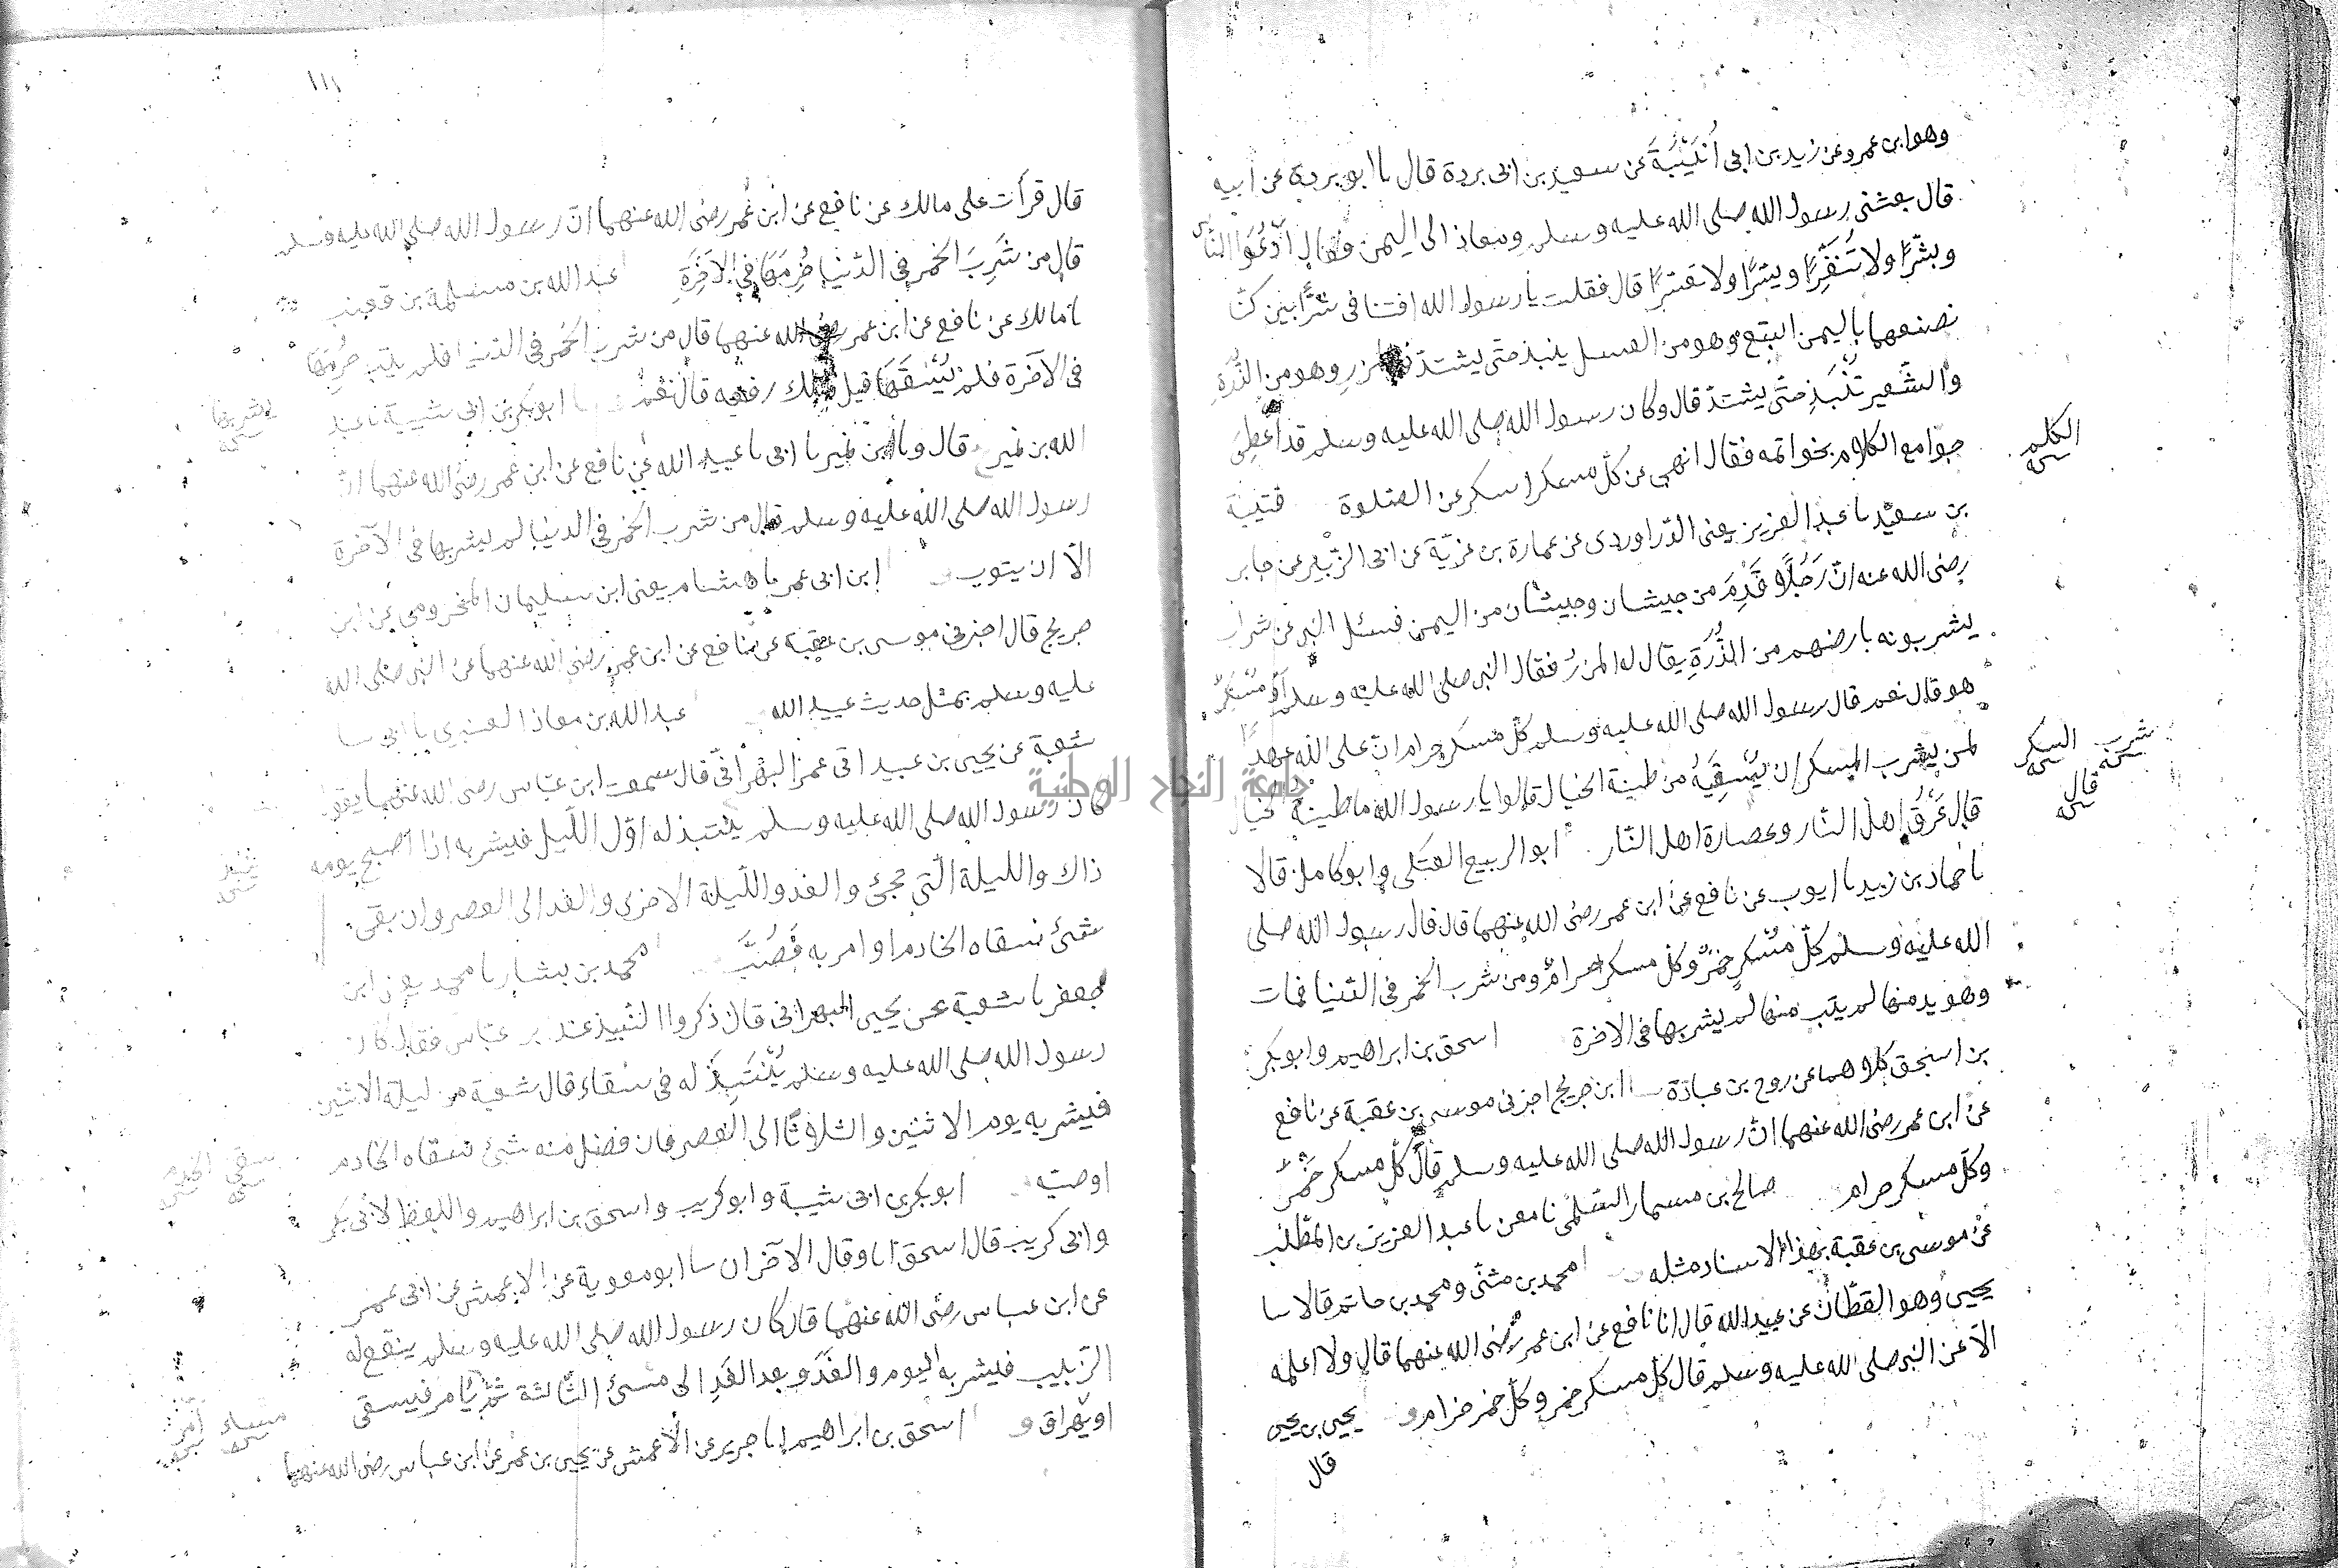 وهو ابن عمرو عن زيد بن ابى أُنَيْسَةَ عن سعيد بن ابى بردة قال نا ابو بردة عن ابيه
قال بعثنى رسول الله صلى الله عليه وسلم ومعاذ الى اليمن فقال ادْعُوَا الناس
وبشّرا ولا تُنَفِّرا ويسّرا ولا تعسّرا قال فقلت يا رسول الله افتنا فى شرابين كنّا
نصنعهما باليمن البتع وهو من العسل ينبذ حتى يشتدّ والمزر وهو من الذُّرة
والشّعير تُنْبَذ حتّى يشتدّ قال وكان رسول الله صلى الله عليه وسلم قد أُعْطِىَ
جوامع الكلام بخواتمه فقال انهى عن كلّ مسكر اسكر عن الصلوة قتيبة
الكلم
بن سعيد نا عبد العزيز يعنى الدّراوردى عن عمارة بن غزيّة عن ابى الزّبير عن جابر
رضى الله عنه انّ رَجُلًا قَدِمَ من جيشان وجيشان من اليمن فسئل النبى عن شراب
يشربونه بارضهم من الذُّرَةِ يقال له المزرُ فقال النبى صلى الله عليه وسلم أوَمُسْكِرٌ
هو قال نعم قال رسول الله صلى الله عليه وسلم كلّ مسكر حرام انّ على الله عهدًا
لمن يشرب المسكر ان يُسْقِيَهُ من طينة الخبال قالوا يا رسول الله ما طينة الخبال
شرب السكر
قال
قال عَرَقُ اهل النّار وعصارة اهل النّار ابو الربيع العتكى وابو كامل قالا
نا حماد بن زيد نا ايوب عن نافع عن ابن عمر رضى الله عنهما قال قال رسول الله صلى
الله عليه وسلم كلّ مُسْكرٍ خمرٌ وكل مسكر حرامٌ ومن شرب الخمر فى الدّنيا فمات
وهو يدمنها لم يتب منها لم يشربها فى الاخرة اسحق بن ابراهيم وابو بكر
بن اسحق كلاهما عن روح بن عبادة نا ابن جريج اخبرنى موسى بن عقبة عن نافع
عن ابن عمر رضى الله عنهما انّ رسول الله صلى الله عليه وسلم قال كلّ مسكر خَمْرٌ
وكلّ مسكر حرام صالح بن مسمار السّلمى نا معن نا عبد العزيز بن المطّلب
عن موسى بن عقبة بهذا الاسناد مثله محمد بن مثنّى ومحمد بن حاتم قالا نا
يحيى وهو القطّان عن عبيد الله قال انا نافع عن ابن عمر رضى الله عنهما قال ولا اعلمه
الّا عن النبى صلى الله عليه وسلم قال كلّ مسكر خمر وكلّ خمر حرام يحيى بن يحيى
قال
١١١
قال قرأت على مالك عن نافع عن ابن عمر رضى الله عنهما انّ رسول الله صلى الله عليه وسلم
قال من شَرِبَ الخمر فى الدّنيا حُرِمَهَا فى الآخِرَةِ عبد الله بن مسلمة بن قعنب
نا مالك عن نافع عن ابن عمر رضى الله عنهما قال من شرب الخمر فى الدنيا فلم يتب حُرِمَهَا
فى الآخرة فلم يُسْقَهَا قيل لمالك رفعه قال نعم ابو بكر بن ابى شيبة نا عبد
يشربها
الله بن نمير قال ونا ابن نمير نا ابى نا عبيد الله عن نافع عن ابن عمر رضى الله عنهما انّ
رسول الله صلى الله عليه وسلم قال من شرب الخمر فى الدنيا لم يشربها فى الآخرة
الّا ان يتوب ابن ابى عمر نا هشام يعنى ابن سليمان المخزومى عن ابن
جريج قال اخبرنى موسى بن عقبة عن نافع عن ابن عمر رضى الله عنهما عن النبى صلى الله
عليه وسلم بمثل حديث عبيد الله عبد الله بن معاذ العنبرى نا ابى نا
شعبة عن يحيى بن عبيد ابى عمر البهرانىّ قال سمعت ابن عبّاس رضى الله عنهما يقول
كان رسول الله صلى الله عليه وسلم ينتبذ له اوّل اللّيل فيشربه اذا اصبح يومه
ينبذ
ذاك والليلة الّتى تجىء والغد واللّيلة الاخرى والغد الى العصر وان بقى
شىء سقاه الخادم او امر به فَصُبَّ محمد بن بشار نا محمد يعنى ابن
جعفر نا شعبة عن يحيى البهرانى قال ذكروا النّبيذ عند ابن عبّاس فقال كان
رسول الله صلى الله عليه وسلم يُنْتَبَذُ له فى سقاء قال شعبة من ليلة الاثنين
فيشربه يوم الاثنين والثلاثا الى العصر فان فضل منه شىء سقاه الخادم
سقى الخدم
او صبّه ابو بكر بن ابى شيبة وابو كريب واسحق بن ابراهيم واللفظ لابى بكر
وابى كريب قال اسحق انا وقال الآخران نا ابو معوية عن الاعمش عن ابى عمر
عن ابن عباس رضى الله عنهما قال كان رسول الله صلى الله عليه وسلم ينقع له
الزّبيب فيشربه اليوم والغَد وبعد الغَدِ الى مسئ الثّالثة ثمّ يامر فيسقى
مساء أمر
او يهراق اسحق بن ابراهيم انا جرير عن الاعمش عن يحيى بن عمر عن ابن عباس رضى الله عنهما
جامعة النجاح الوطنية